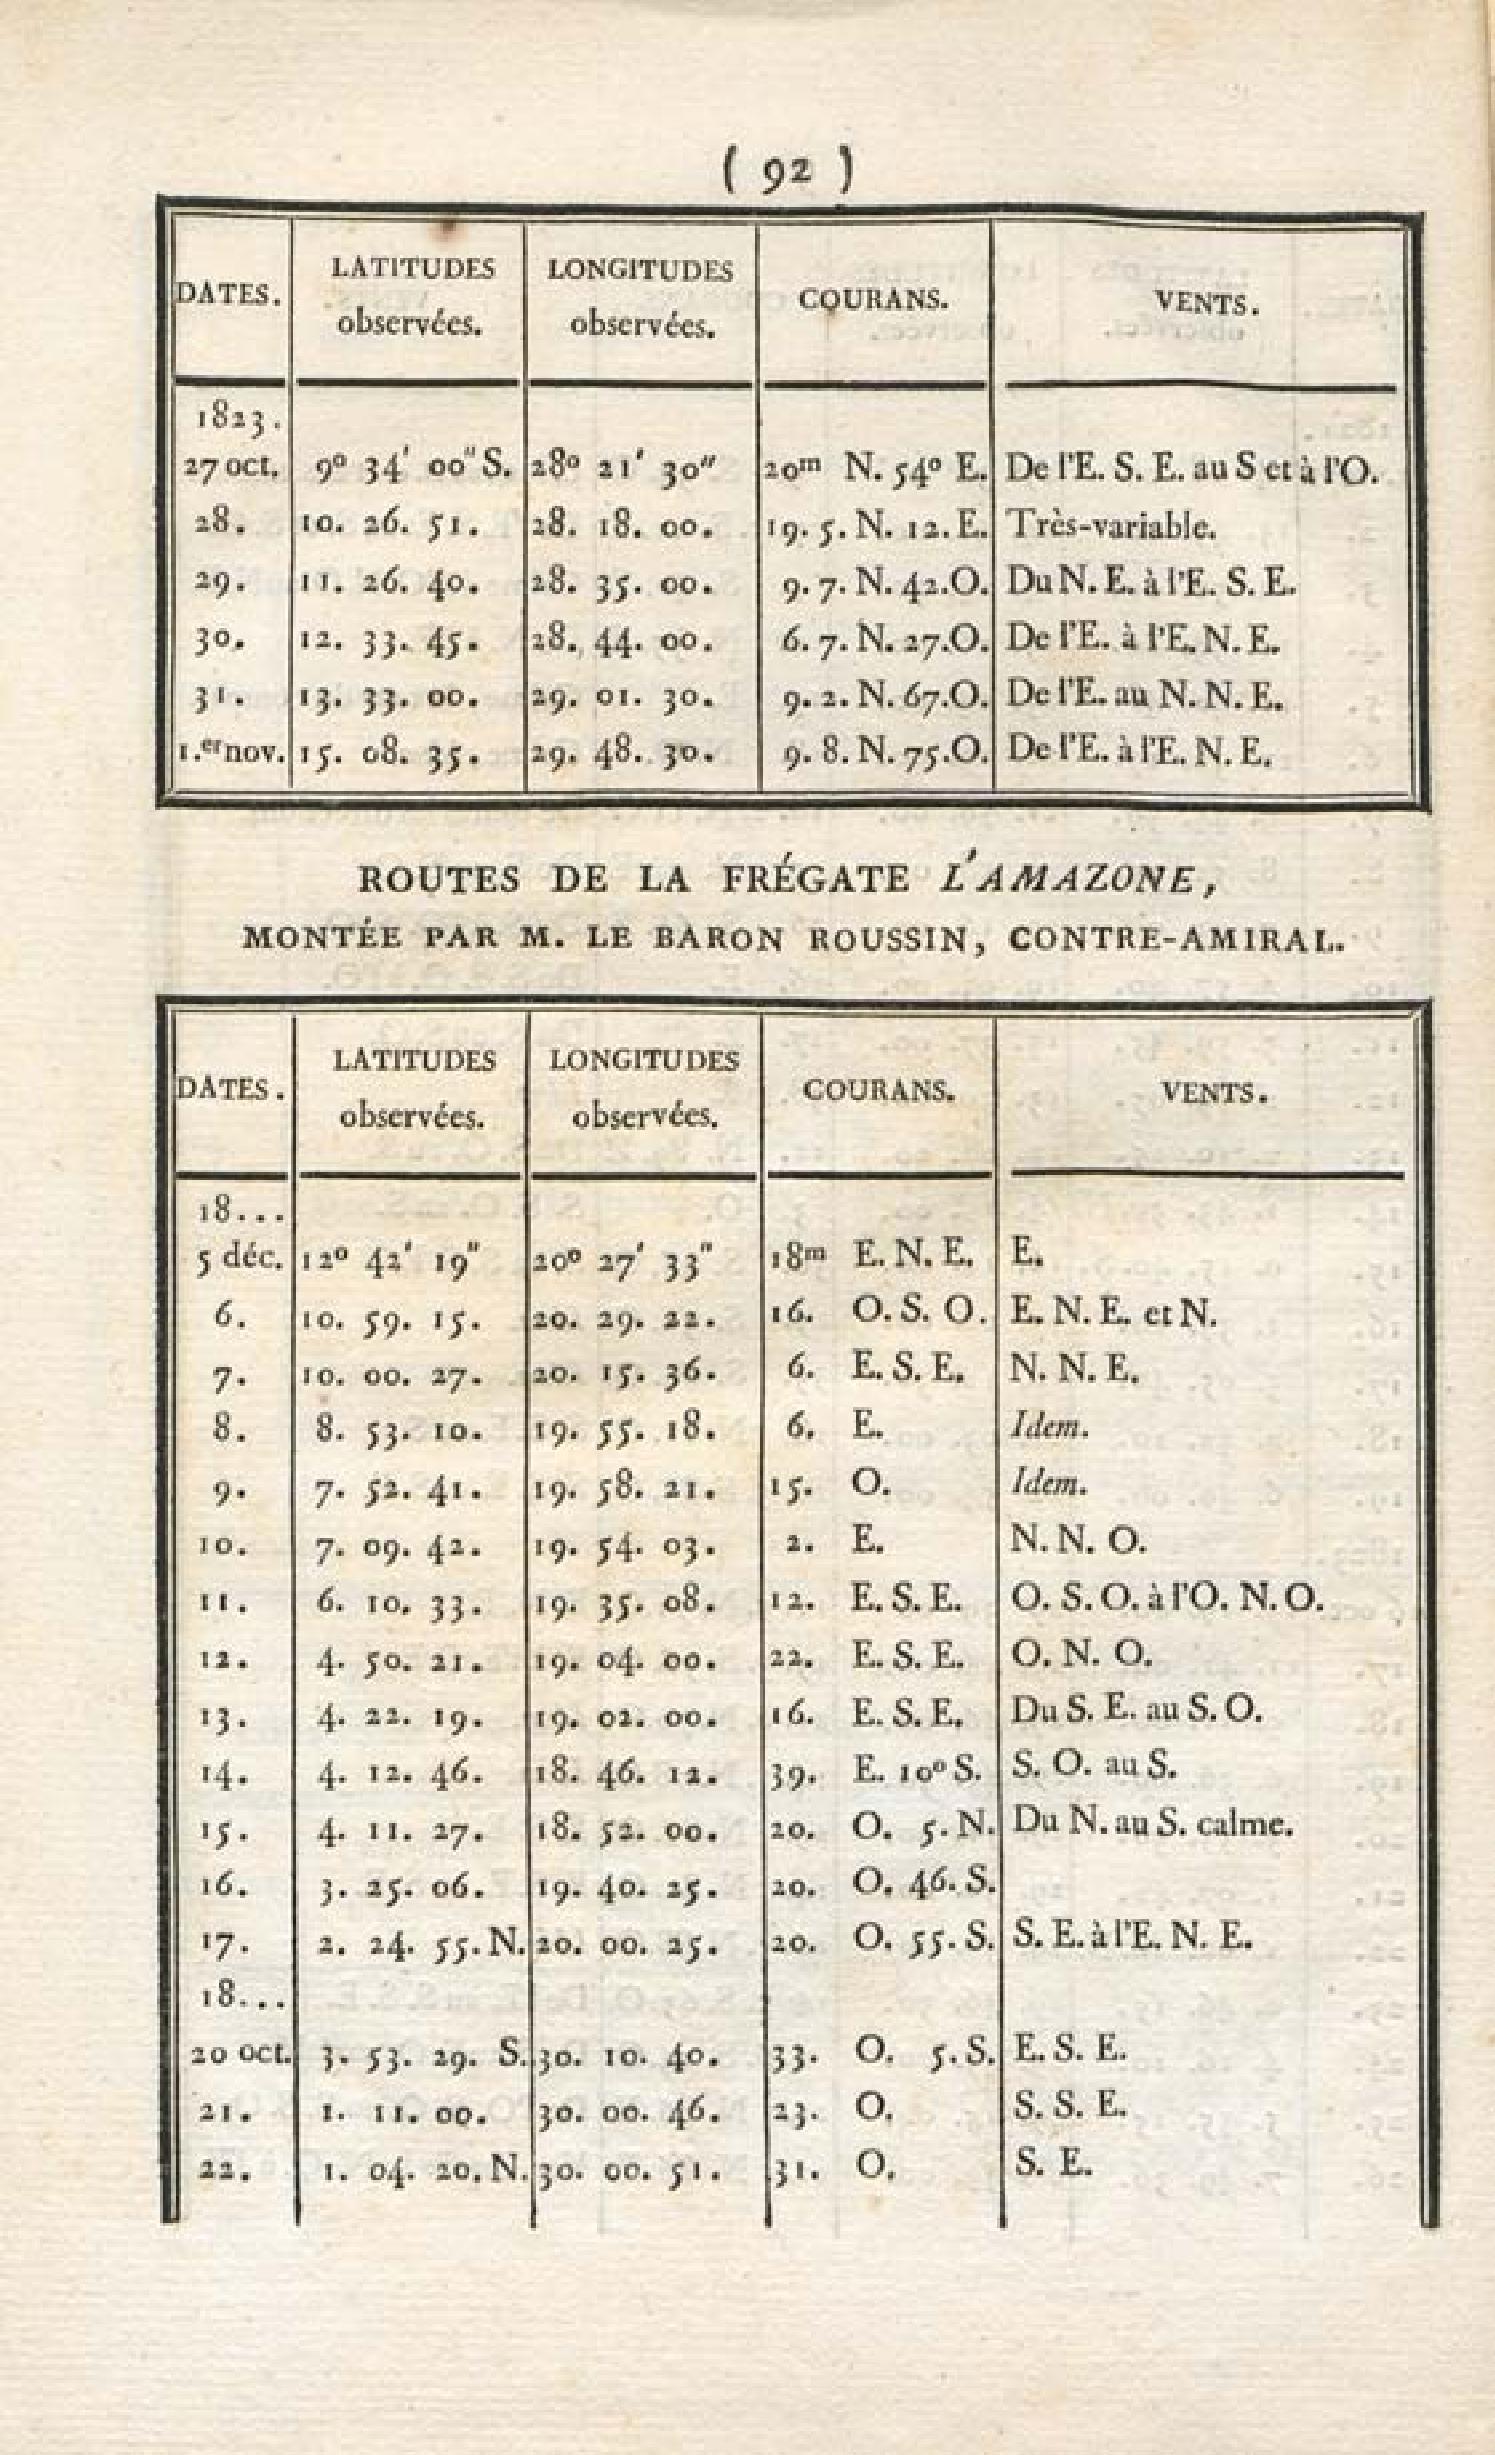 ( 92 )
DATES. LATITUDES observées. LONGITUDES observées. COURANS. VENTS.
1823.
27 oct. 9° 34' 00" S. 28° 21' 30" 20m N. 54° E. De l'E. S. E. au S et à l'O.
28. 10. 26. 51. 28. 18. 00. 19. 5. N. 12. E. Très-variable.
29. 11. 26. 40. 28. 35. 00. 9. 7. N. 42. O. Du N. E. à l'E. S. E.
30. 12. 33. 45. 28. 44. 00. 6. 7. N. 27. O. De l'E. à l'E. N. E.
31. 13. 33. 00. 29. 01. 30. 9. 2. N. 67. O. De l'E. au N. N. E.
1.er nov. 15. 08. 35. 29. 48. 30. 9. 8. N. 75. O. De l'E. à l'E. N. E.
ROUTES DE LA FRÉGATE L'AMAZONE,
MONTÉE PAR M. LE BARON ROUSSIN, CONTRE-AMIRAL.
DATES. LATITUDES observées. LONGITUDES observées. COURANS. VENTS.
18...
5 déc. 12° 42' 19" 20° 27' 33" 18m E. N. E. E.
6. 10. 59. 15. 20. 29. 22. 16. O. S. O. E. N. E. et N.
7. 10. 00. 27. 20. 15. 36. 6. E. S. E. N. N. E.
8. 8. 53. 10. 19. 55. 18. 6. E. Idem.
9. 7. 52. 41. 19. 58. 21. 15. O. Idem.
10. 7. 09. 42. 19. 54. 03. 2. E. N. N. O.
11. 6. 10. 33. 19. 35. 08. 12. E. S. E. O. S. O. à l'O. N. O.
12. 4. 50. 21. 19. 04. 00. 22. E. S. E. O. N. O.
13. 4. 22. 19. 19. 02. 00. 16. E. S. E. Du S. E. au S. O.
14. 4. 12. 46. 18. 46. 12. 39. E. 10° S. S. O. au S.
15. 4. 11. 27. 18. 52. 00. 20. O. 5. N. Du N. au S. calme.
16. 3. 25. 06. 19. 40. 25. 20. O. 46. S.
17. 2. 24. 55. N. 20. 00. 25. 20. O. 55. S. S. E. à l'E. N. E.
18...
20 oct. 3. 53. 29. S. 30. 10. 40. 33. O. 5. S. E. S. E.
21. 1. 11. 00. 30. 00. 46. 23. O. S. S. E.
22. 1. 04. 20. N. 30. 00. 51. 31. O. S. E.